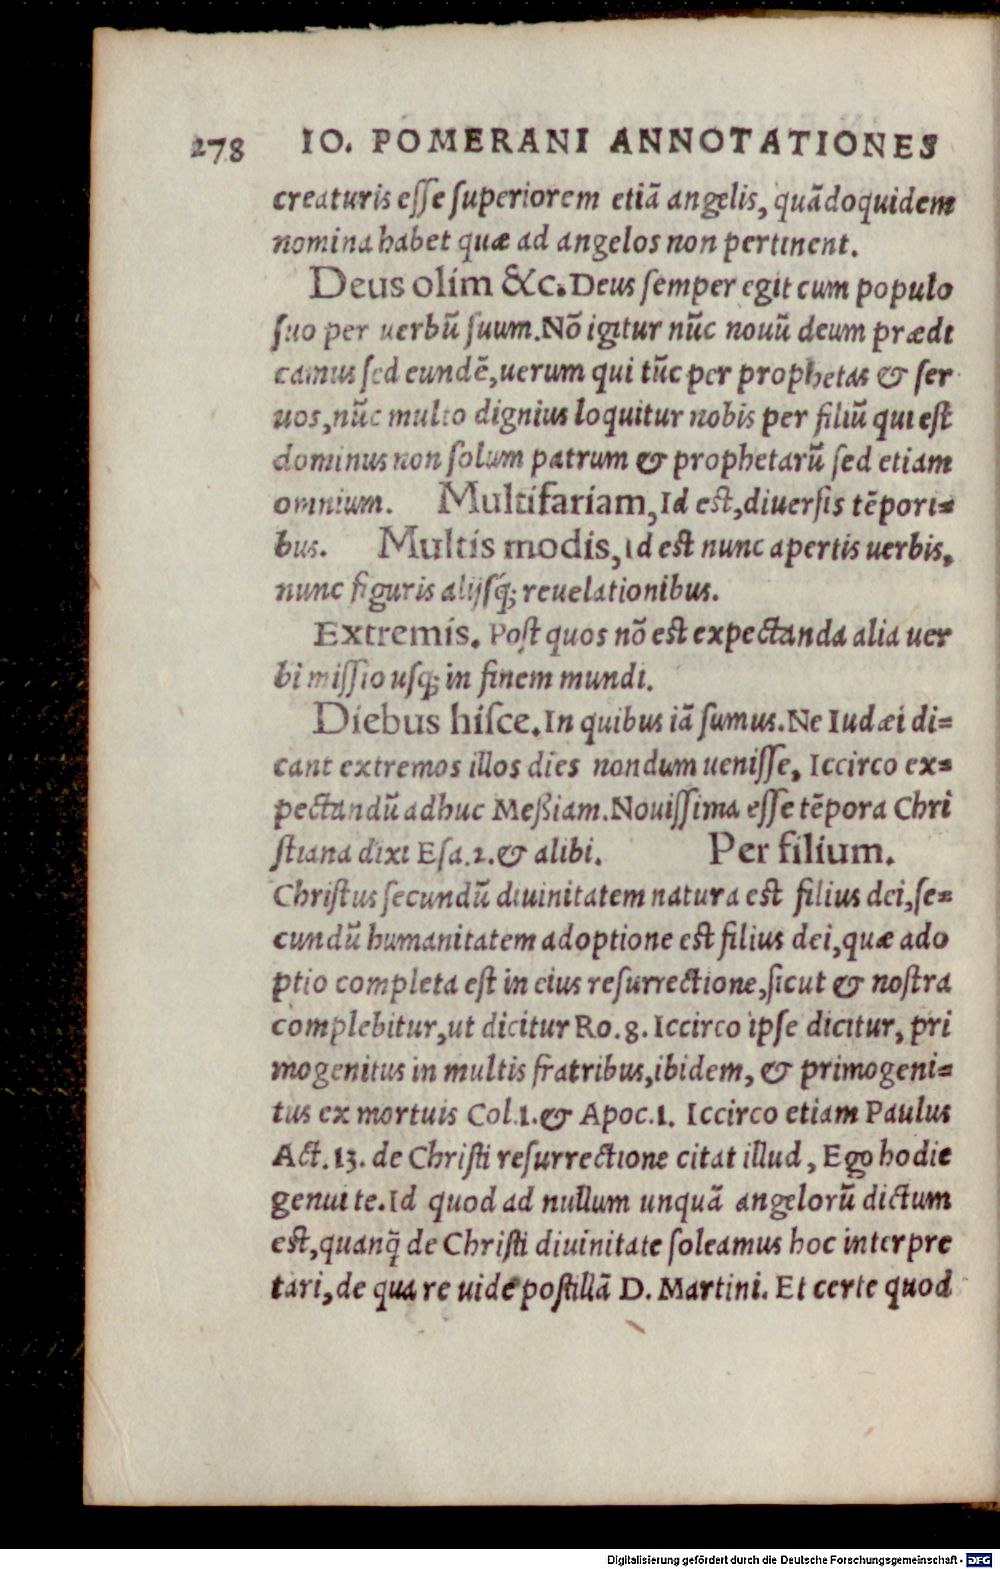 278 IO. POMERANI ANNOTATIONES
creaturis eſſe ſuperiorem etiã angelis, quãdoquidem
nomina habet quæ ad angelos non pertinent.
Deus olim &c. Deus ſemper egit cum populo
ſuo per uerbũ ſuum. Nõ igitur nũc nouũ deum prædi
camus ſed eundẽ, uerum qui tũc per prophetas & ſer
uos, nũc multo dignius loquitur nobis per filiũ qui eſt
dominus non ſolum patrum & prophetarũ ſed etiam
omnium. Multifariam, Id eſt, diuerſis tẽpori=
bus. Multis modis, id eſt nunc apertis uerbis,
nunc figuris alijſq́; reuelationibus.
Extremis. Poſt quos nõ eſt expectanda alia uer
bi miſſio uſq; in finem mundi.
Diebus hiſce. In quibus iã ſumus. Ne Iudæi di=
cant extremos illos dies nondum ueniſſe, Iccirco ex=
pectandũ adhuc Meßiam. Nouiſſima eſſe tẽpora Chri
ſtiana dixi Eſa.2. & alibi. Per filium.
Chriſtus ſecundũ diuinitatem natura eſt filius dei, ſe=
cundũ humanitatem adoptione eſt filius dei, quæ ado
ptio completa eſt in eius reſurrectione, ſicut & noſtra
complebitur, ut dicitur Ro. 8. Iccirco ipſe dicitur, pri
mogenitus in multis fratribus, ibidem, & primogeni=
tus ex mortuis Col.1. & Apoc.1. Iccirco etiam Paulus
Act. 13. de Chriſti reſurrectione citat illud, Ego hodie
genui te. Id quod ad nullum unquã angelorũ dictum
eſt, quanq̃ de Chriſti diuinitate ſoleamus hoc interpre
tari, de qua re uide poſtillã D. Martini. Et certe quod
Digitalisierung gefördert durch die Deutsche Forschungsgemeinschaft - DFG